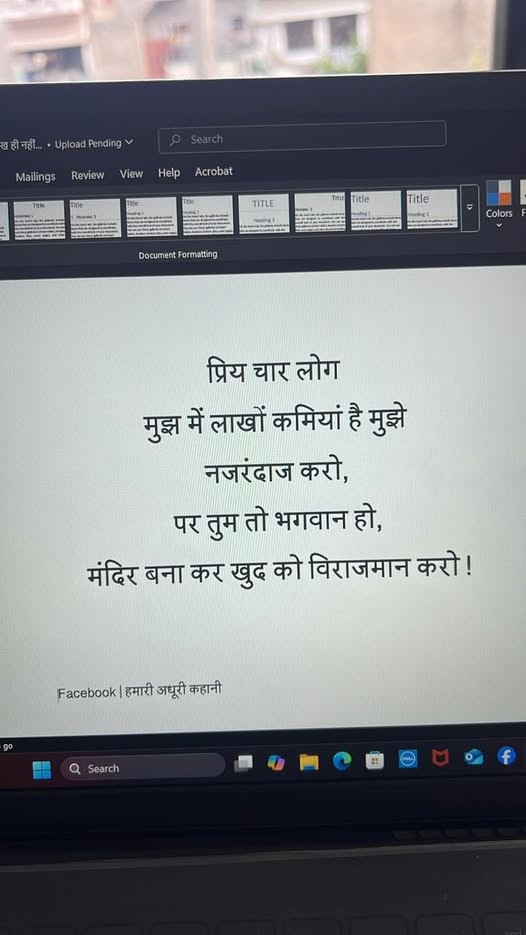 ख ही नहीं... • Upload Pending
Search
Mailings Review View Help Acrobat
Title Title Title Title TITLE Title Title Title
Heading 1 Heading 1 Heading 1
Colors
Document Formatting
प्रिय चार लोग
मुझ में लाखों कमियां है मुझे
नजरंदाज करो,
पर तुम तो भगवान हो,
मंदिर बना कर खुद को विराजमान करो !
Facebook | हमारी अधूरी कहानी
go
Search